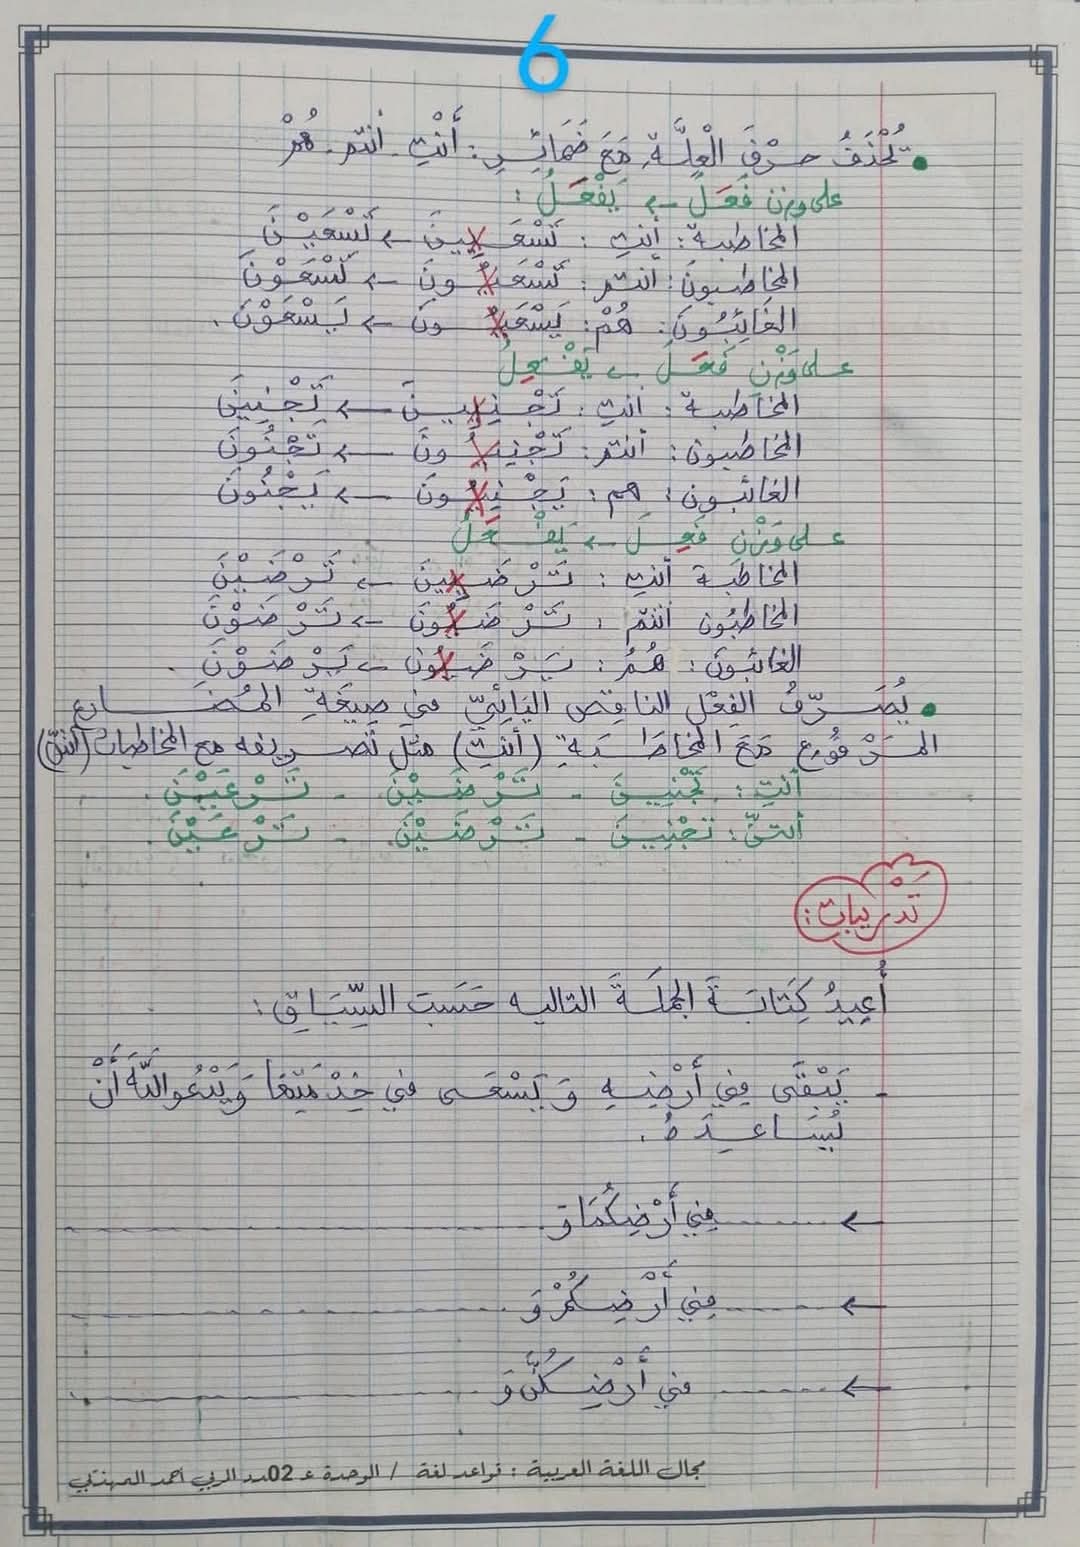 6
• تُحْذَفُ حرْفَ الْعِلَّةِ مَعَ ضَمَائِرِ : أَنْتِ - أنتم - هُمْ
على وزن فَعَلَ ← يَفْعَلُ :
المخاطبة : أنتِ : تَسْعَيِينَ ← تَسْعَيْنَ
المخاطبون : أنتم : تَسْعَيُونَ ← تَسْعَوْنَ
الغَائِبُونَ : هُمْ : يَسْعَيُونَ ← يَسْعَوْنَ .
على وَزْنِ فَعَلَ ← يَفْعِلُ
المخاطبة : أنتِ : تَجْنِيِينَ ← تَجْنِينَ
المخاطبون : أنتم : تَجْنِيُونَ ← تَجْنُونَ
الغائبون : هم : يَجْنِيُونَ ← يَجْنُونَ
على وَزْنِ فَعِلَ ← يَفْعَلُ
المخاطَبة أنتِ : تَرْضَيِينَ ← تَرْضَيْنَ
المخاطبُون أنتم : تَرْضَيُونَ ← تَرْضَوْنَ
الغائبُونَ : هُمُ : يَرْضَيُونَ ← يَرْضَوْنَ .
• يُصَرَّفُ الفِعْل الناقِص اليَائِيّ في صِيغَةِ المُضَارع
المَرْفُوعِ مَعَ المخَاطَبَةِ (أنتِ) مثل تَصريفه مع المخاطبات (أنتنّ)
أنتِ : تَجْنِينَ - تَرْضَيْنَ - تَرْعَيْنَ .
أنتنَّ : تَجْنِينَ - تَرْضَيْنَ - تَرْعَيْنَ .
تَدْريبات :
أُعِيدُ كِتَابَةَ الجملَةَ التاليه حَسَبَ السِّيَاقِ :
- يَبْقَى فِي أَرْضِهِ وَيَسْعَى في خِدْمَتِهَا وَيَدْعُو اللَّهَ أَنْ
يُسَاعِدَهُ .
← ........ فِي أَرْضِكُمَا وَ ........
← ........ فِي أَرْضِكُمْ وَ ........
← ........ في أَرْضِكُنَّ وَ ........
مجال اللغة العربية : قواعد لغة / الوحدة ع02دد المربي أحمد المهذبي